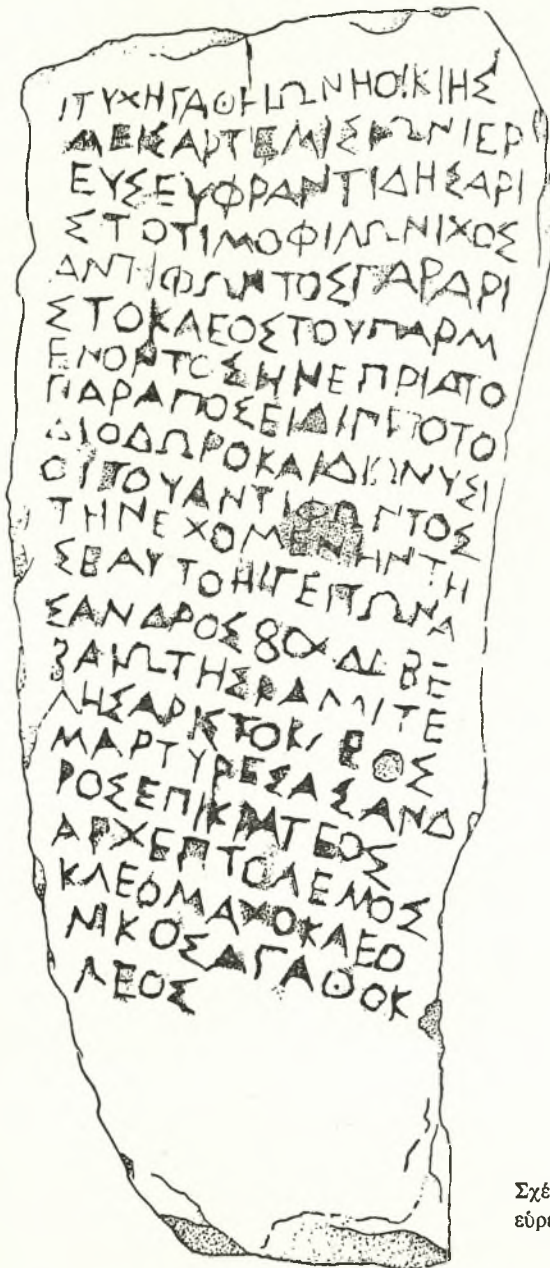 ΙΤΥΧΗΓΑΘΗΩΝΗΟΙΚΙΗΣ
ΜΕΙΣΑΡΤΕΜΙΣΙΩΝΙΕΡ
ΕΥΣΕΥΦΡΑΝΤΙΔΗΣΑΡΙ
ΣΤΟΤΙΜΟΦΙΛΩΝΙΧΟΣ
ΑΝΤΙΦΩΝΤΟΣΓΑΡΑΡΙ
ΣΤΟΚΛΕΟΣΤΟΥΠΑΡΜ
ΕΝΟΝΤΟΣΗΝΕΠΡΙΑΤΟ
ΠΑΡΑΠΟΣΕΙΔΙΠΠΟΤΟ
ΔΙΟΔΩΡΟΚΑΙΔΙΩΝΥΣΙ
ΟΙΤΟΥΑΝΤΙΦΩΝΤΟΣ
ΤΗΝΕΧΟΜΕΝΗΝΤΗ
ΣΕΑΥΤΟΗΙΓΕΙΤΩΝΑ
ΣΑΝΔΡΟΣ
ΜΑΡΤΥΡΕΣΑΣΑΝΔ
ΡΟΣΕΠΙΚΡΑΤΕΟΣ
ΑΡΧΕΠΤΟΛΕΜΟΣ
ΚΛΕΟΜΑΧΟΚΛΕΟ
ΝΙΚΟΣΑΓΑΘΟΚ
ΛΕΟΣ
Σχέ
εὑρε